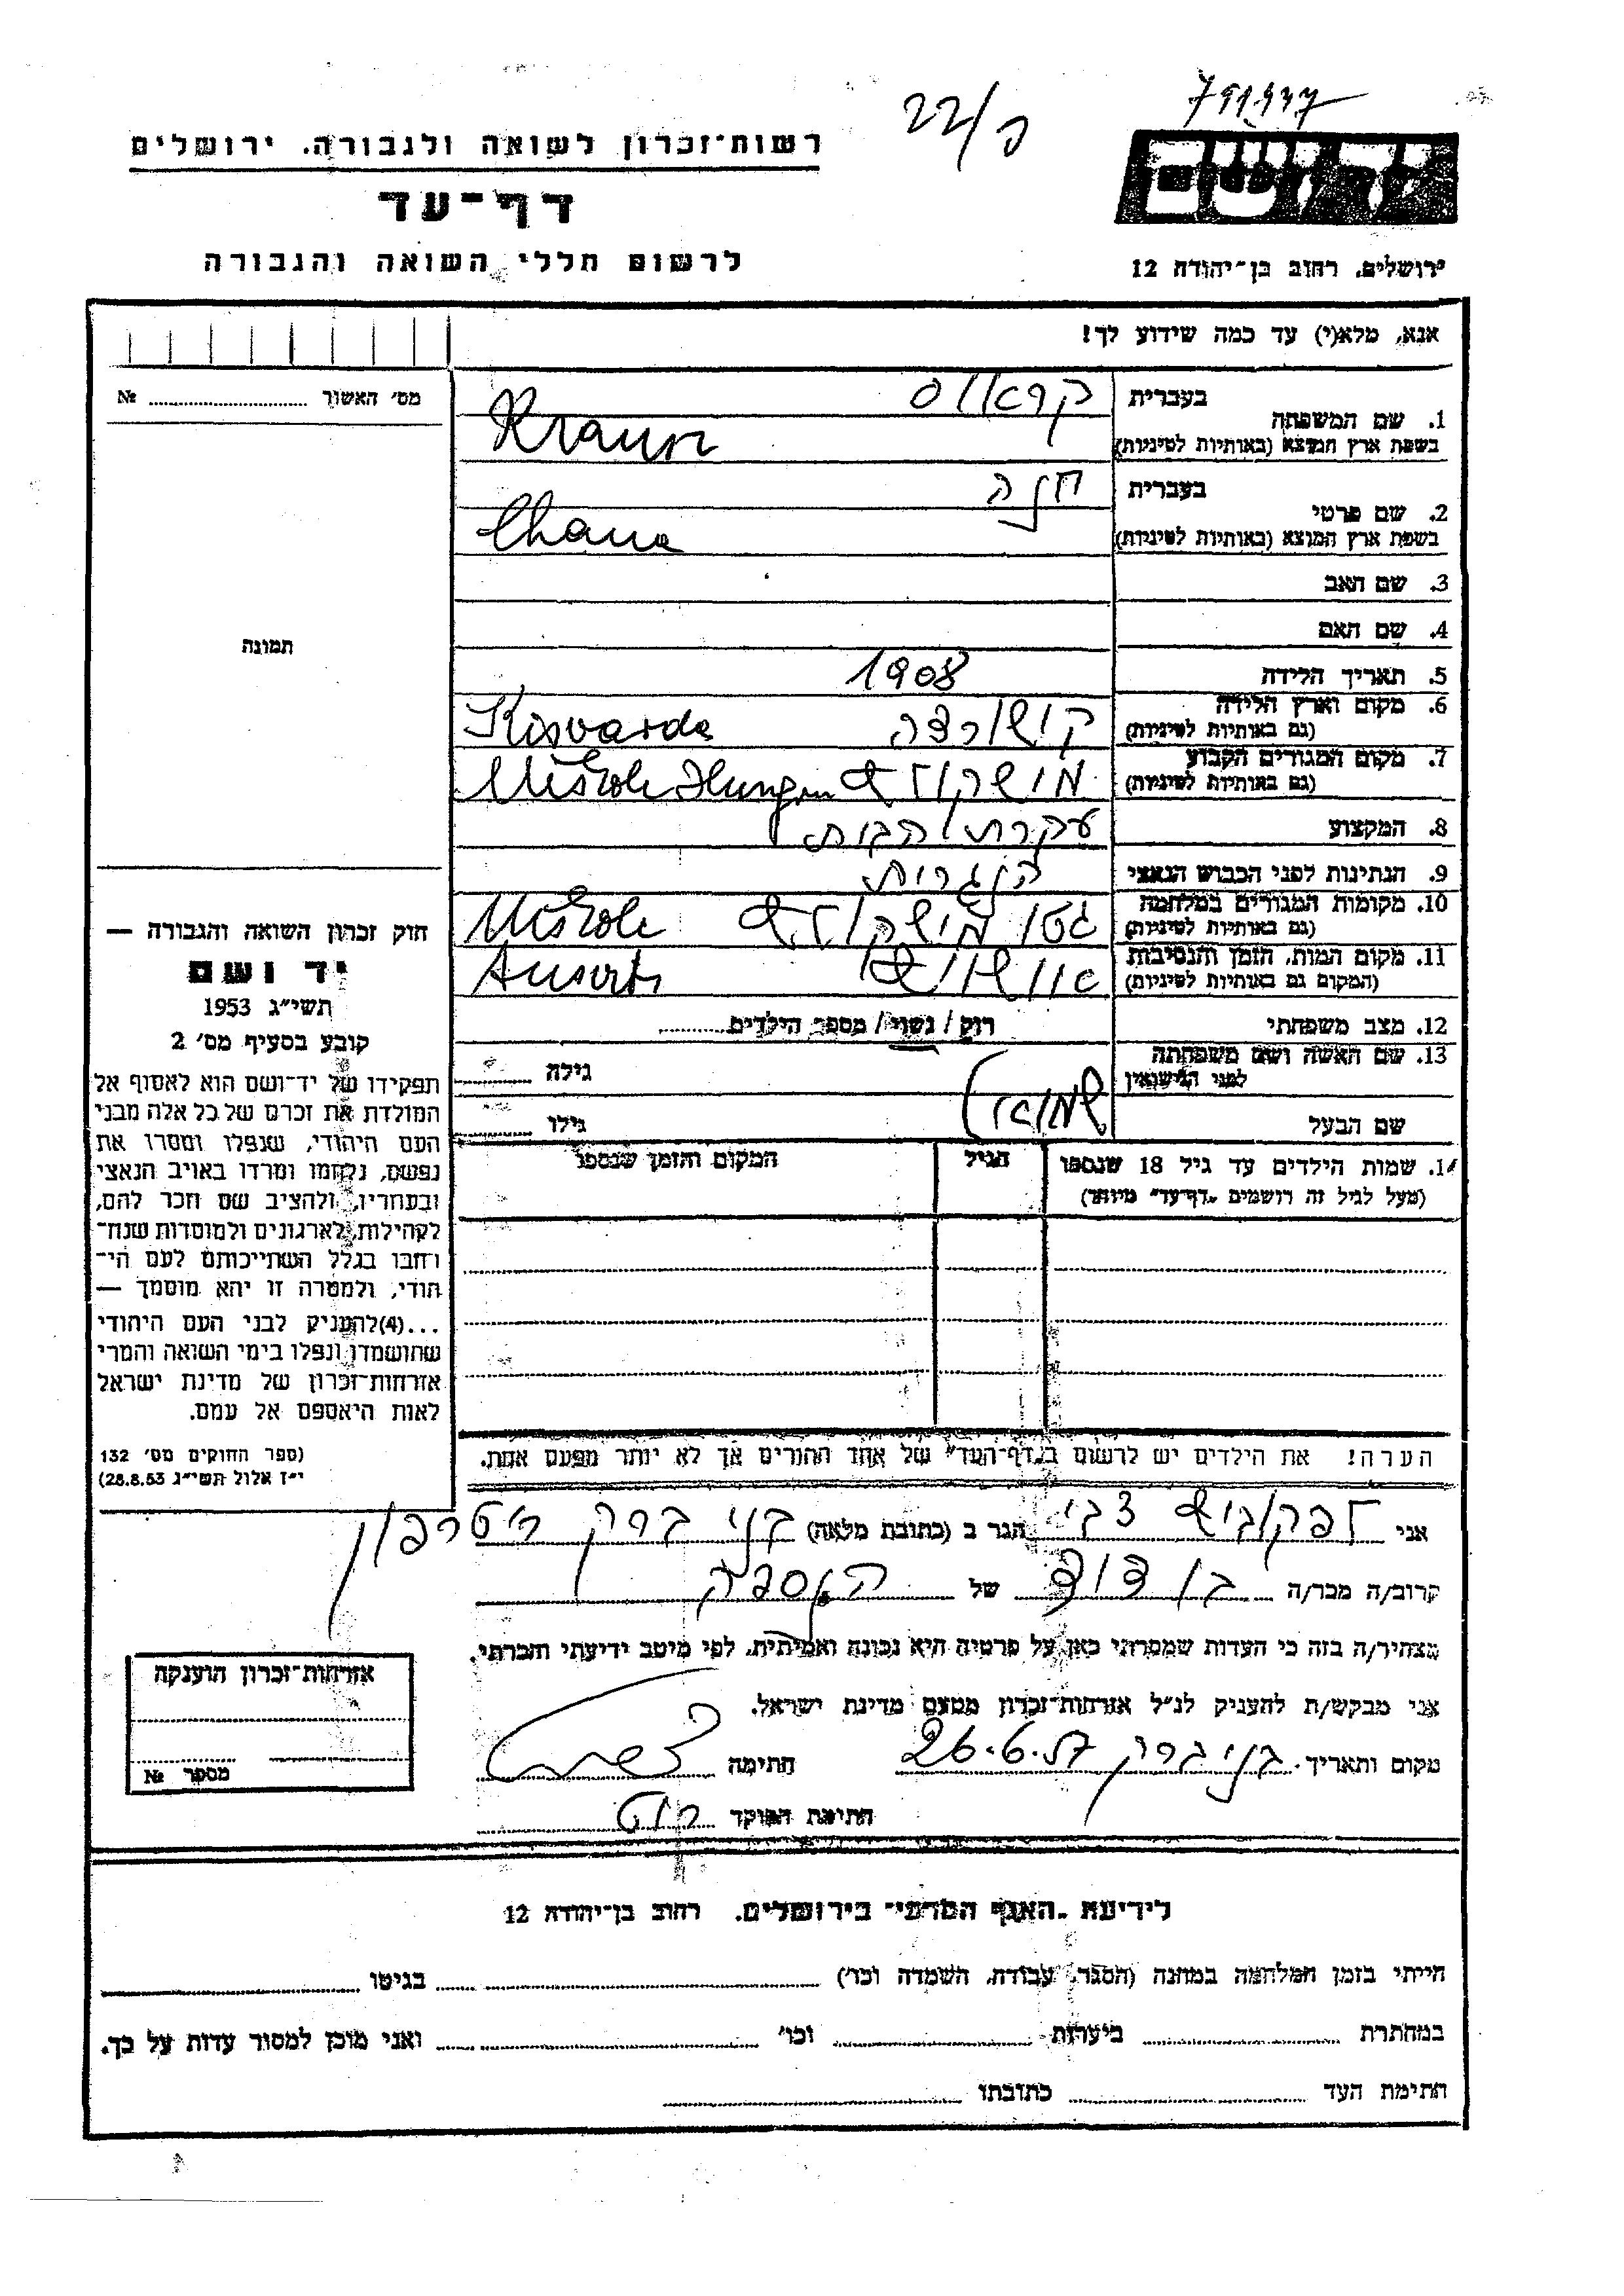 22/ק
791937
רשות־זכרון לשואה ולגבורה. ירושלים
דף־עד
לרשום חללי השואה והגבורה
יד ושם
ירושלים, רחוב בן־יהודה 12
אנא, מלא(י) עד כמה שידוע לך!
מס׳ האשור №
תמונה
חוק זכרון השואה והגבורה —
יד ושם
תשי״ג 1953
קובע בסעיף מס׳ 2
תפקידו של יד־ושם הוא לאסוף אל
המולדת את זכרם של כל אלה מבני
העם היהודי, שנפלו ומסרו את
נפשם, נלחמו ומרדו באויב הנאצי
ובעוזריו, ולהציב שם וזכר להם,
לקהילות, לארגונים ולמוסדות שנח־
רחבו בגלל השתייכותם לעם הי־
הודי, ולמטרה זו יהא מוסמך —
...(4) להעניק לבני העם היהודי
שהושמדו ונפלו בימי השואה והמרי
אזרחות־זכרון של מדינת ישראל
לאות היאספם אל עמם.
(ספר החוקים מס׳ 132
י״ז אלול תשי״ג 28.8.53)
1. שם המשפחה בעברית קראוס
בשפת ארץ המוצא (באותיות לטיניות) Kraus
2. שם פרטי בעברית חנה
בשפת ארץ המוצא (באותיות לטיניות) Chana
3. שם האב
4. שם האם
5. תאריך הלידה 1908
6. מקום וארץ הלידה (גם באותיות לטיניות) קישורדה Kisvarda
7. מקום המגורים הקבוע (גם באותיות לטיניות) מישקולץ
8. המקצוע עקרת הבית
9. הנתינות לפני הכבוש הנאצי הנגרית
10. מקומות המגורים במלחמה (גם באותיות לטיניות) גטו מישקולץ
11. מקום המות, הזמן והנסיבות (המקום גם באותיות לטיניות) אושויץ
12. מצב משפחתי רוק / נשוי / מספר הילדים
13. שם האשה ושם משפחתה לפני הנישואין גילה
שם הבעל שמואל גילו
14. שמות הילדים עד גיל 18 שנספו הגיל המקום והזמן שנספו
(מעל לגיל זה רושמים „דף־עד״ מיוחד)
הערה! את הילדים יש לרשום ב„דף־העד״ של אחד ההורים אך לא יותר מפעם אחת.
אני לפקוביץ צבי הגר ב (כתובת מלאה) בני ברק
קרוב/ה מכר/ה בן דוד של
מצהיר/ה בזה כי העדות שמסרתי כאן על פרטיה היא נכונה ואמיתית, לפי מיטב ידיעתי והכרתי.
אני מבקש/ת להעניק לנ״ל אזרחות־זכרון מטעם מדינת ישראל.
מקום ותאריך בני ברק 26.6.57 חתימה
חתימת הפוקד
אזרחות־זכרון הוענקה
מספר №
לידיעת „האגף המדעי״ בירושלים, רחוב בן־יהודה 12
הייתי בזמן המלחמה במחנה (הסגר, עבודה, השמדה וכו׳) בגיטו
במחתרת ביערות וכו׳ ואני מוכן למסור עדות על כך.
חתימת העד כתובתו